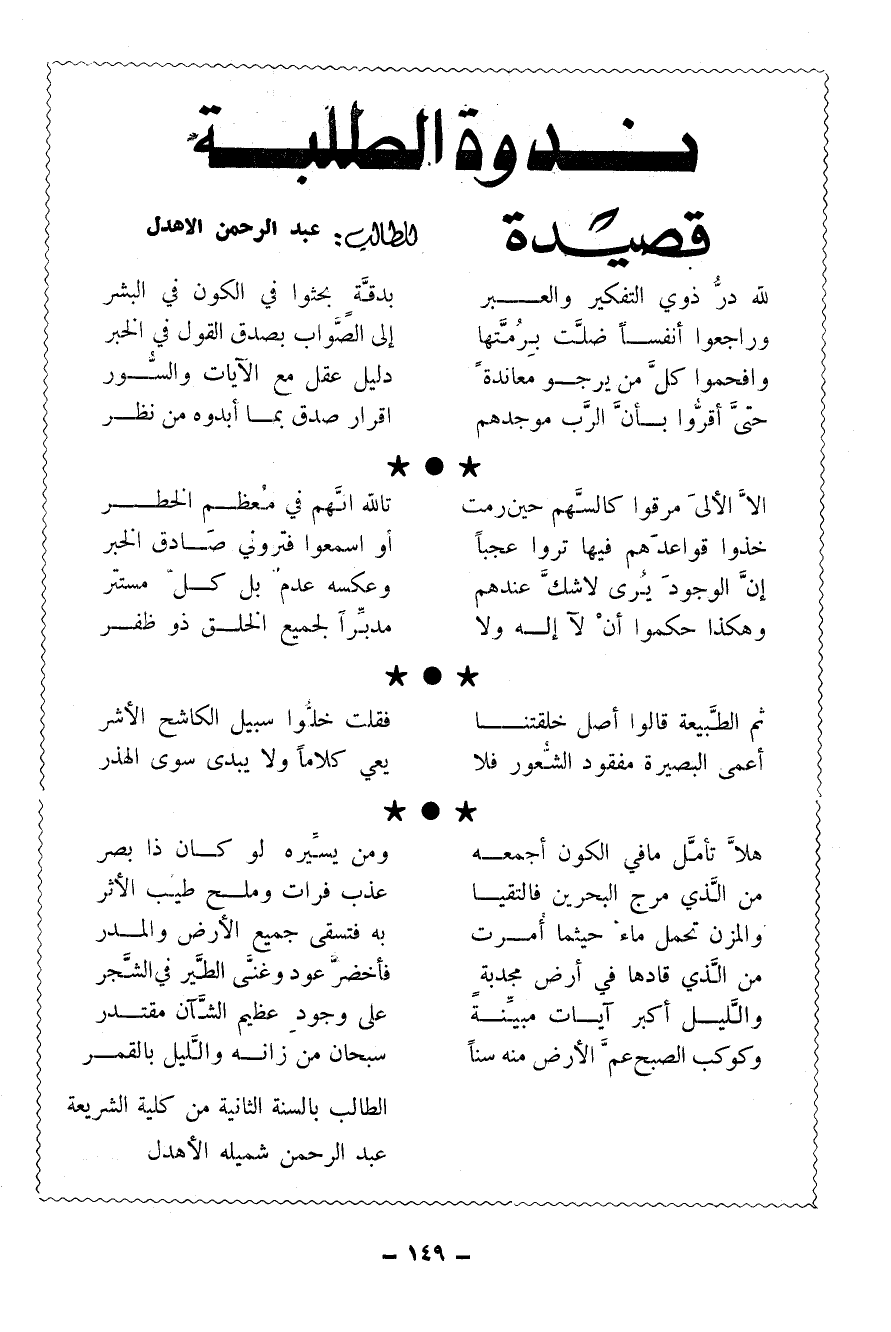 ندوة الطلبة
قصيدة للطالب: عبد الرحمن الاهدل
لله درُّ ذوي التفكير والعبر بدقَّةٍ بحثوا في الكون في البشر
وراجعوا أنفساً ضلَّت بِرُمَّتها إلى الصَّواب بصدق القول في الخبر
وافحموا كلَّ من يرجو معاندةً دليل عقل مع الآيات والسُّور
حتىَّ أقرُّوا بأنَّ الرَّب موجدهم اقرار صدق بما أبدوه من نظر
★ ● ★
الاَّ الألىَ مرقوا كالسَّهم حين رمت تالله انَّهم في مُعظم الخطر
خذوا قواعدَهم فيها تروا عجباً أو اسمعوا فتروني صَادق الخبر
إنَّ الوجودَ يُرى لاشكَّ عندهم وعكسه عدمٌ بل كلّ مستتر
وهكذا حكموا أنْ لآ إله ولا مدبِّراً لجميع الخلق ذو ظفر
★ ● ★
ثم الطَّبيعة قالوا أصل خلقتنا فقلت خلُّوا سبيل الكاشح الأشر
أعمى البصيرة مفقود الشُّعور فلا يعي كلاماً ولا يبدى سوى الهذر
★ ● ★
هلاَّ تأمَّل مافي الكون أجمعه ومن يسيِّره لو كان ذا بصر
من الَّذي مرج البحرين فالتقيا عذب فرات وملح طيّب الأثر
والمزن تحمل ماءً حيثما أُمرت به فتسقى جميع الأرض والمدر
من الَّذي قادها في أرض مجدبة فأخضرَّ عود وغنَّى الطَّير في الشَّجر
واللَّيل أكبر آيات مبيِّنةً على وجودِ عظيم الشَّآن مقتدر
وكوكب الصبح عمَّ الأرض منه سناً سبحان من زانه واللَّيل بالقمر
الطالب بالسنة الثانية من كلية الشريعة
عبد الرحمن شميله الأهدل
– ١٤٩ –